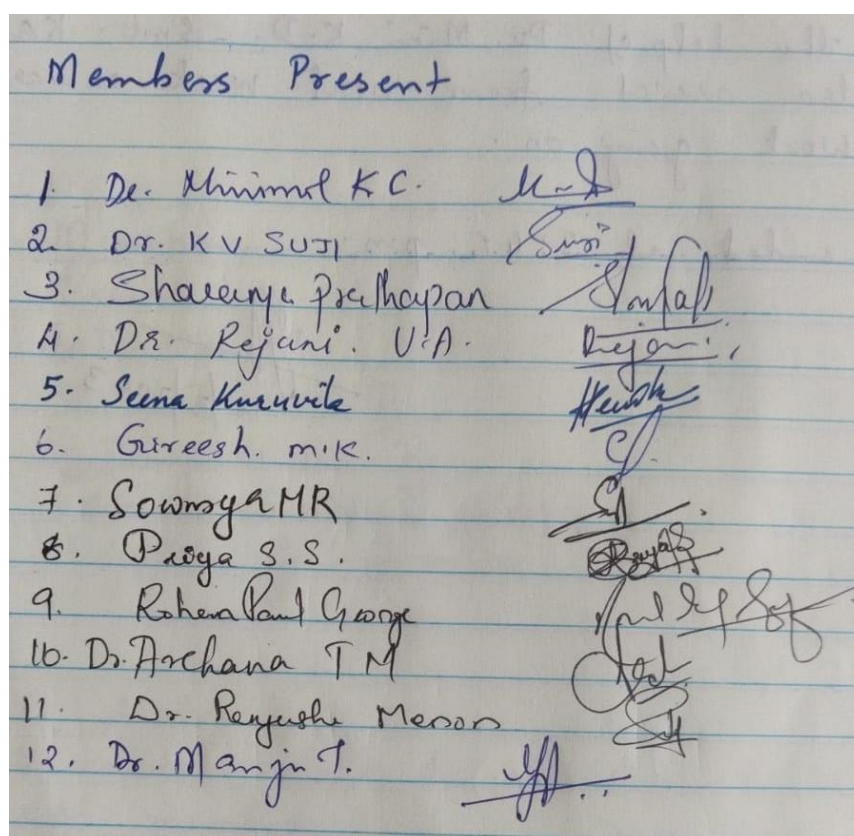 Members Present
1. Dr. Minimol K C.
2. Dr. K V SUJI Suji
3. Sharanya Prathapan
4. Dr. Rejani. U.A. Rejani
5. Seena Kuruvila
6. Gireesh. M.K.
7. Sowmya MR
8. Priya S.S. Priya S
9. Paul George
10. Dr. Archana T M
11. Dr. Renjusha Menon
12. Dr. Manju T.